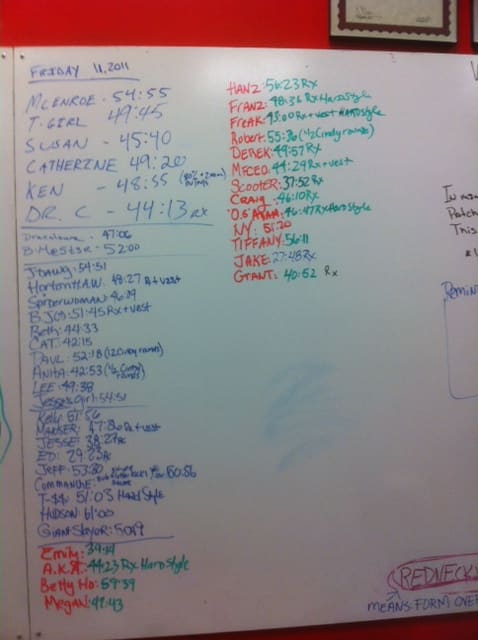 FRIDAY 11, 2011
MCENROE - 54:55
T-GIRL 49:45
SUSAN - 45:40
CATHERINE 49:20
KEN - 48:55
DR. C - 44:13 RX
47:06
B. Mester - 52:00
JDawg: 54:51
HortonH.A.W. 48:27 Rx + vest
Spiderwoman: 46:39
B.J.(: 51:45 Rx + vest
Beth: 44:33
CAT: 42:15
PAUL: 52:18 (1/2 Cindy rounds)
ANITA: 42:53 (1/2 Cindy rounds)
LEE: 49:38
Jesse's Girl: 54:51
Kelly: 51:56
47:26 Rx + vest
JESSE: 38:27 Rx
ED: 29:23 Rx
JEFF: 53:20
COMMANCHE: 50:56
T-$$: 51:03 Hard Style
HUDSON: 61:00
Giant Slayer: 50:19
Emily: 39:14
A.K.A.: 44:23 Rx Hard Style
Betty Ho: 59:39
Megan: 49:43
HANZ: 56:23 Rx
FRANZ: 48:36 Rx Hard Style
FREAK: 45:00 Rx + vest HARD Style
Robert: 55:36 (1/2 Cindy rounds)
DEREK: 49:57 Rx
MFCEO: 44:29 Rx + vest
SCOOTER: 37:52 Rx
Craig: 46:10 Rx
46:47 Rx Hard Style
NY: 51:20
TIFFANY: 56:11
JAKE: 27:48 Rx
GRANT: 40:52 Rx
In
This
Remin
REDNECK
MEANS FORM OVER